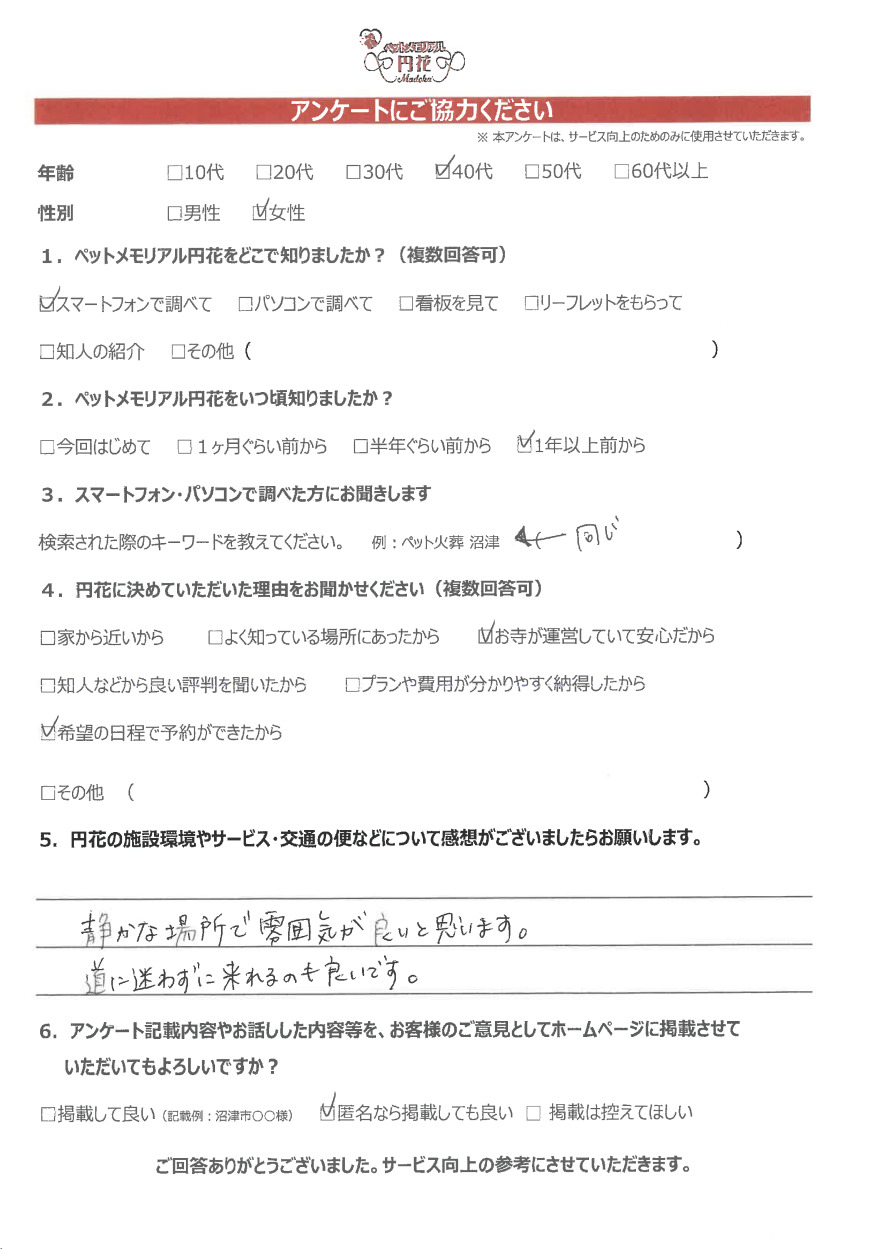 ペットメモリアル
円花
Madoka
アンケートにご協力ください
※ 本アンケートは、サービス向上のためのみに使用させていただきます。
年齢 □10代 □20代 □30代 ☑40代 □50代 □60代以上
性別 □男性 ☑女性
1．ペットメモリアル円花をどこで知りましたか？（複数回答可）
☑スマートフォンで調べて □パソコンで調べて □看板を見て □リーフレットをもらって
□知人の紹介 □その他（ ）
2．ペットメモリアル円花をいつ頃知りましたか？
□今回はじめて □１ヶ月ぐらい前から □半年ぐらい前から ☑1年以上前から
3．スマートフォン・パソコンで調べた方にお聞きします
検索された際のキーワードを教えてください。 例：ペット火葬 沼津 ← 同じ ）
4．円花に決めていただいた理由をお聞かせください（複数回答可）
□家から近いから □よく知っている場所にあったから ☑お寺が運営していて安心だから
□知人などから良い評判を聞いたから □プランや費用が分かりやすく納得したから
☑希望の日程で予約ができたから
□その他 （ ）
5．円花の施設環境やサービス・交通の便などについて感想がございましたらお願いします。
静かな場所で雰囲気が良いと思います。
道に迷わずに来れるのも良いです。
6．アンケート記載内容やお話しした内容等を、お客様のご意見としてホームページに掲載させて
いただいてもよろしいですか？
□掲載して良い（記載例：沼津市〇〇様） ☑匿名なら掲載しても良い □ 掲載は控えてほしい
ご回答ありがとうございました。サービス向上の参考にさせていただきます。